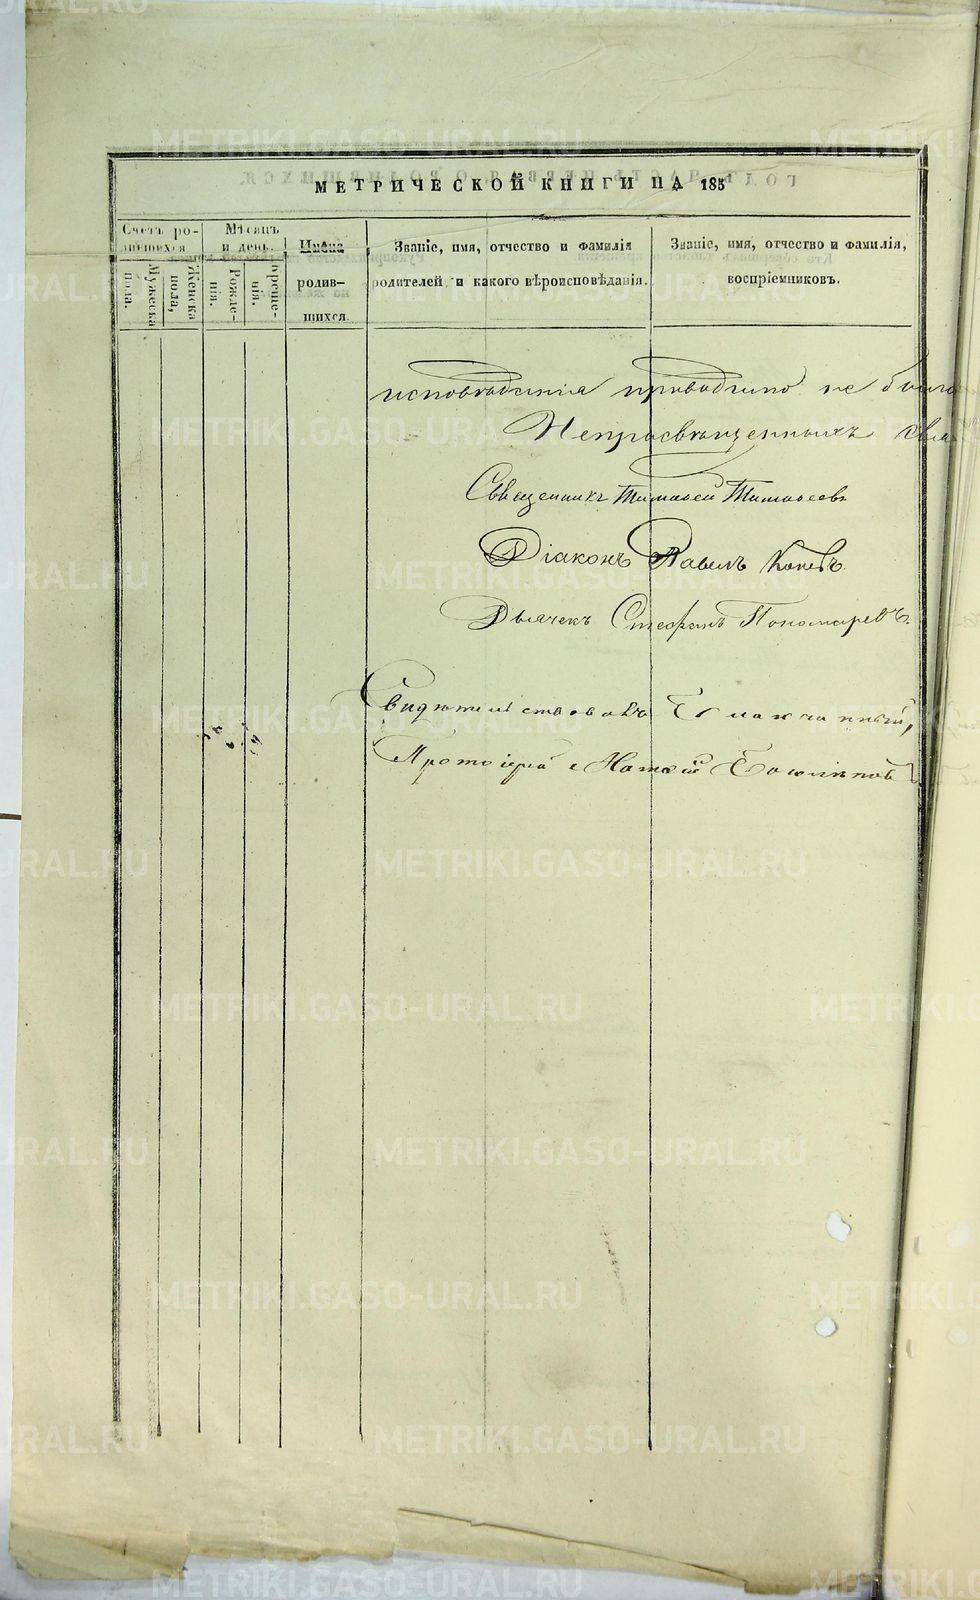 МЕТРИЧЕСКОЙ КНИГИ НА 185
Счетъ ро-
дившихся
Мѣсяцъ
и день.
Имена
родив-
шихся.
Званіе, имя, отчество и фамилія
родителей, и какого вѣроисповѣданія.
Званіе, имя, отчество и фамилія,
воспріемниковъ.
Мужеска
пола.
Женска
пола,
Рожде-
нія.
Креще-
нія.
исповѣданія приводимо не было
Непросвѣщенныхъ
Священникъ Тимофей Тимофеевъ
Діаконъ Павелъ
Дьячекъ Стефанъ Пономаревъ.
Свидѣтельствовалъ Благочинный,
Протоіерей
METRIKI.GASO-URAL.RU